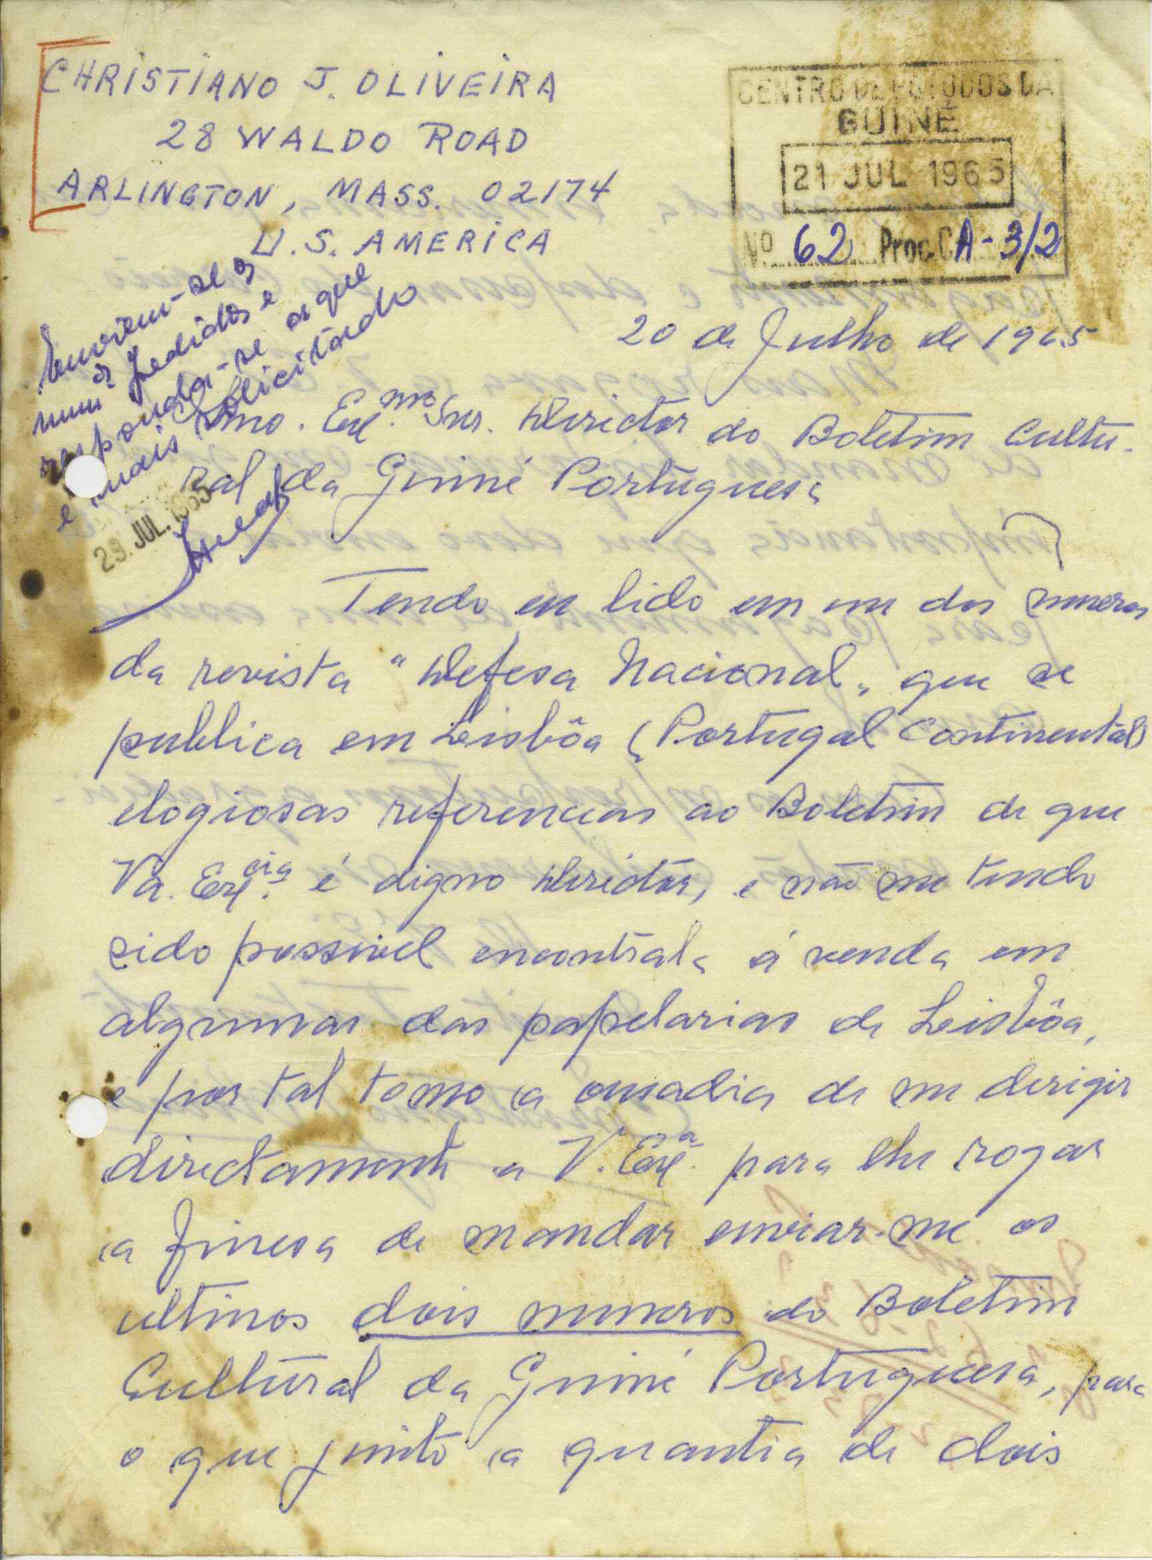 CHRISTIANO J. OLIVEIRA
28 WALDO ROAD
ARLINGTON, MASS. 02174
U.S. AMERICA
CENTRO DE ESTUDOS DA
GUINÉ
21 JUL 1965
Nº 62 Proc. CA-3/2
Enviem-se os
num os pedidos e
responda-se ao que
e mais solicitando
29. JUL. 1965
20 de Julho de 1965
Ilmo. Exmo. Snr. Director do Boletim Cultu-
ral da Guiné Portuguesa
Tendo eu lido em um dos numeros
da revista "Defesa Nacional" que se
publica em Lisbôa (Portugal Continental)
elogiosas referencias ao Boletim de que
Va. Excia. é digno Director, e não me tendo
sido possivel encontrala á venda em
algumas das papelarias de Lisbôa,
e por tal tomo a ousadia de me derigir
directamente a V. Exa. para lhe rogar
a finesa de mandar enviar-me os
ultimos dois numeros do Boletim
Cultural da Guiné Portuguesa, para
o que junto a quantia de dois